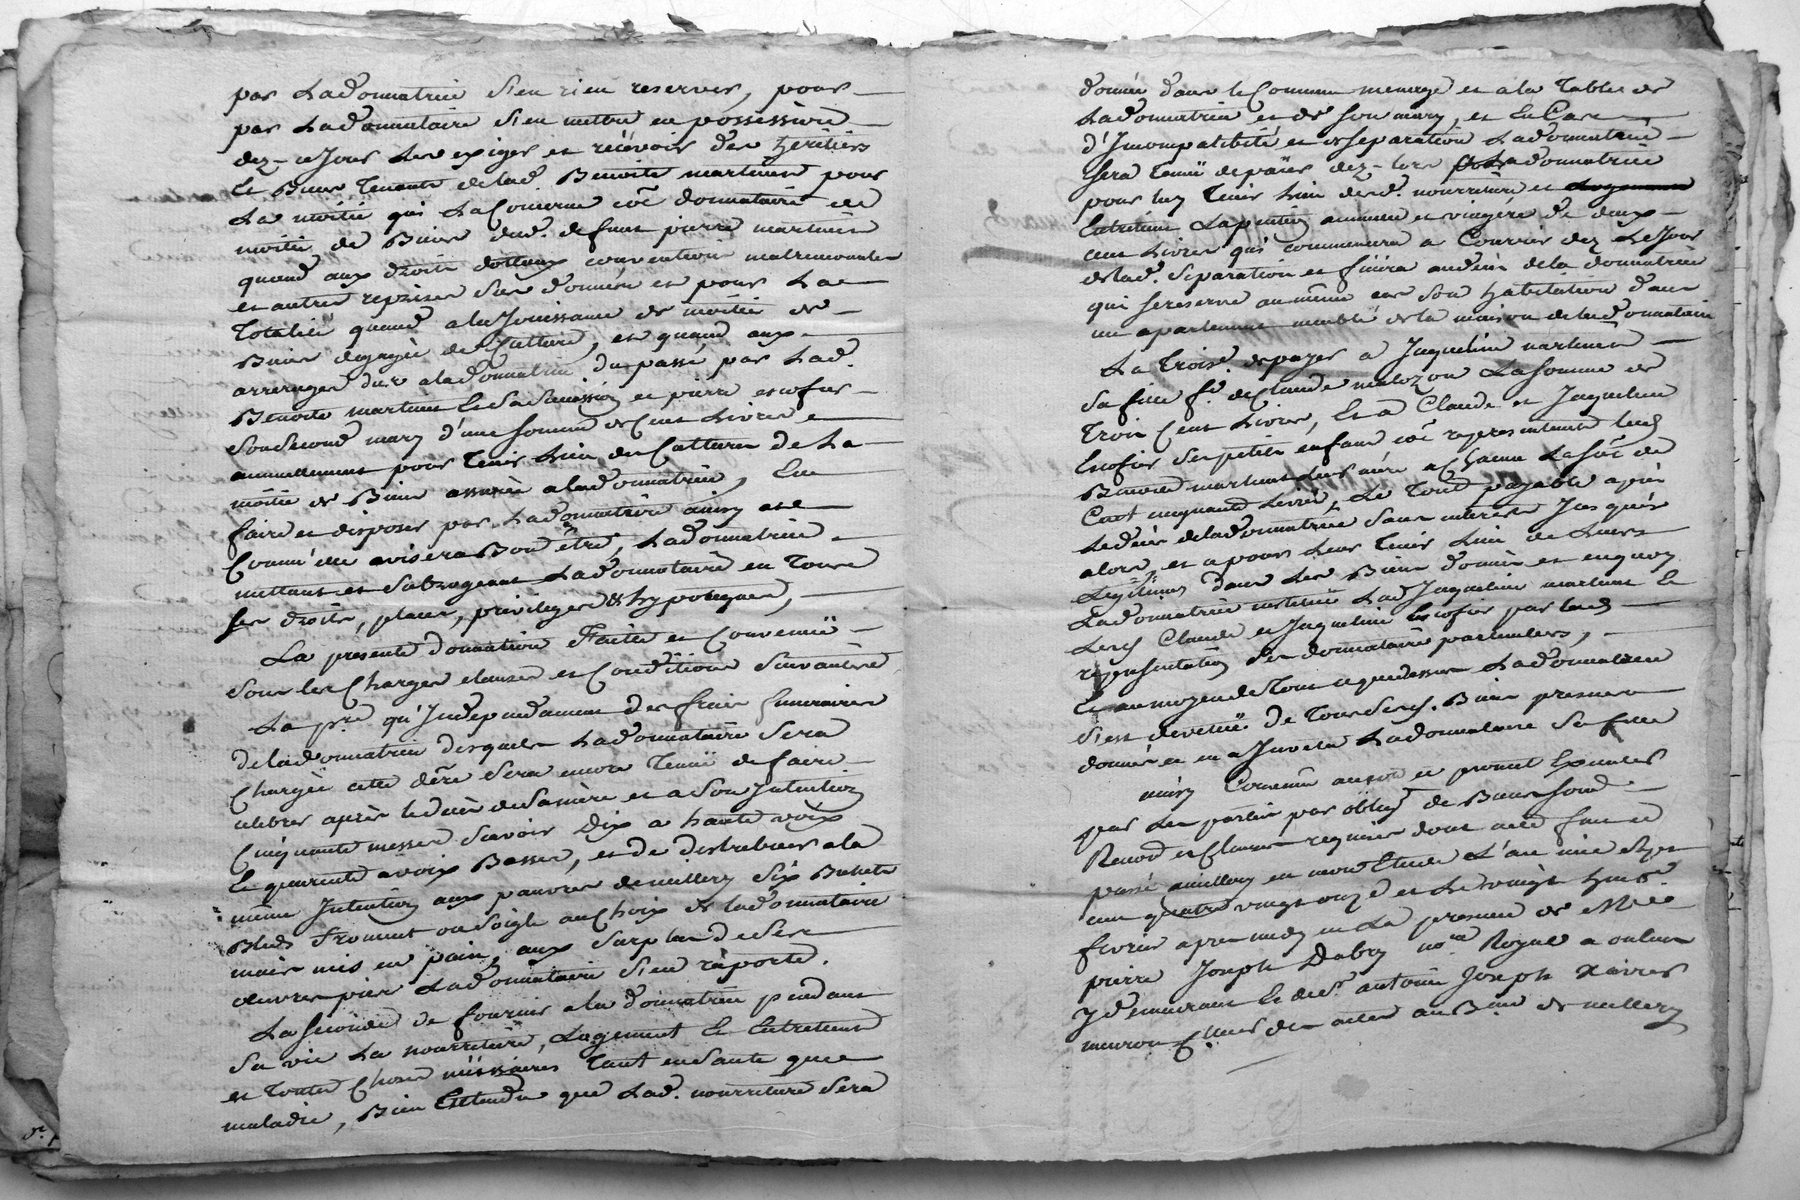 par Ladonnatrice s'en rien reserver, pour
par Ladonnataire s'en mettre en possession
dez-ce jour Les exiger et recevoir des heritiers
et Biens Tenants de lad. Benoite martinet pour
La moitié qui La concerne donnataire de
moitié de Biens dud. deffunt pierre martinet
quand aux droits dottaux convention matrimoniales
et autres reprises Sus donnés et pour La
Totalité quand a la Jouissance de moitié de
Biens de Culture, et quand aux
arrerages dus a ladonnatrice du passé par Lad.
Benoite martinet et pierre escofier
Son Second mary d'une Somme de Cent Livres
annuellement pour Tenir Lieu de Culture de La
moitié de Biens a ladonnatrice, En
faire et disposer par Ladonnataire ainsy et
Comm'elle avisera Bon être, Ladonnatrice
mettant et Subrogeant Ladonnataire en Tous
Ses droits, places, privileges & hypoteques,
La presente donnation Faite et Convenuë
Sous les Charges clauses et Conditions Suivantes
La p.re qu'Independament des frais funeraires
de ladonnatrice desquels Ladonnataire Sera
Chargée cette dère Sera encore Tenuë de faire
celebrer après le decès de Sa mère et a Son Intention
Cinquante messes Savoir Dix a haute voix
et quarante a voix Basse, et de distribuer a la
même Intention aux pauvres de millery Six Bichets
Bled Froment ou Soigle au Choix de ladonnataire
mais mis en pain, aux Surplus de Ses
œuvres pies Ladonnatrice S'en raporte.
La Seconde de fournir a la donnatrice pendant
Sa vie La nourriture, Logement et Entretient
et Toutes Choses necessaires Tant en Santé que
maladie, Bien Entendu que Lad. nourriture Sera
donnée dans le Commun menage et a la Table de
Ladonnatrice et de Son mary, et En Cas
d'Incompatibité et de Separation Ladonnataire
Sera Tenuë de payer dez-lors Ladonnatrice
pour luy Tenir Lieu de Sd. nourriture et
Entretient La pention annuelle et viagère de deux
cent Livres qui commencera a Courrir dez Le Jour
de lad. Separation et finira au decès de la donnatrice
qui Se reserve au même cas Son habitation dans
un apartement meublé de la maison de ladonnataire
La Trois.e de payer a Jaqueline martinet
Sa fille f.e de Claude malozon La Somme de
Trois Cent Livres, et a Claude et Jaqueline
Escofier Ses petits enfans representants lad.
Benoite martinet Leur mère a Chacun La Somme de
Cent cinquante Livres, Le Tout payable après
Le decès de ladonnatrice Sans interets Jusqu'à
alors et a pour Leur Tenir Lieu de Leurs
Legitimes dans Les Biens donnés et en quoy
Ladonnatrice institue Lad. Jaqueline martinet et
Lesd. Claude et Jaqueline Escofier par lad.
représentation Ses donnataires particuliers,
Et au moyen de Tout ce que dessus Ladonnatrice
S'est devetuë de Tous Sesd. Biens presents
donnés et en a Investi Ladonnataire Sa fille
ainsy Convenu accepté et promit Executer
par Les parties par oblig.on de Biens Soud.
Renon.on et Clauses requises dont acte fait et
passé a millery en notre Etude L'an mil Sept
cent quatre vingt onze et Le vingt huit.e
fevrier apres midy en La presence de M.e
pierre Joseph Dabry no.re Royal a oulins
y demeurant et de S.r antoine Joseph Xavier
meuron C.eur des actes au B.au de millery